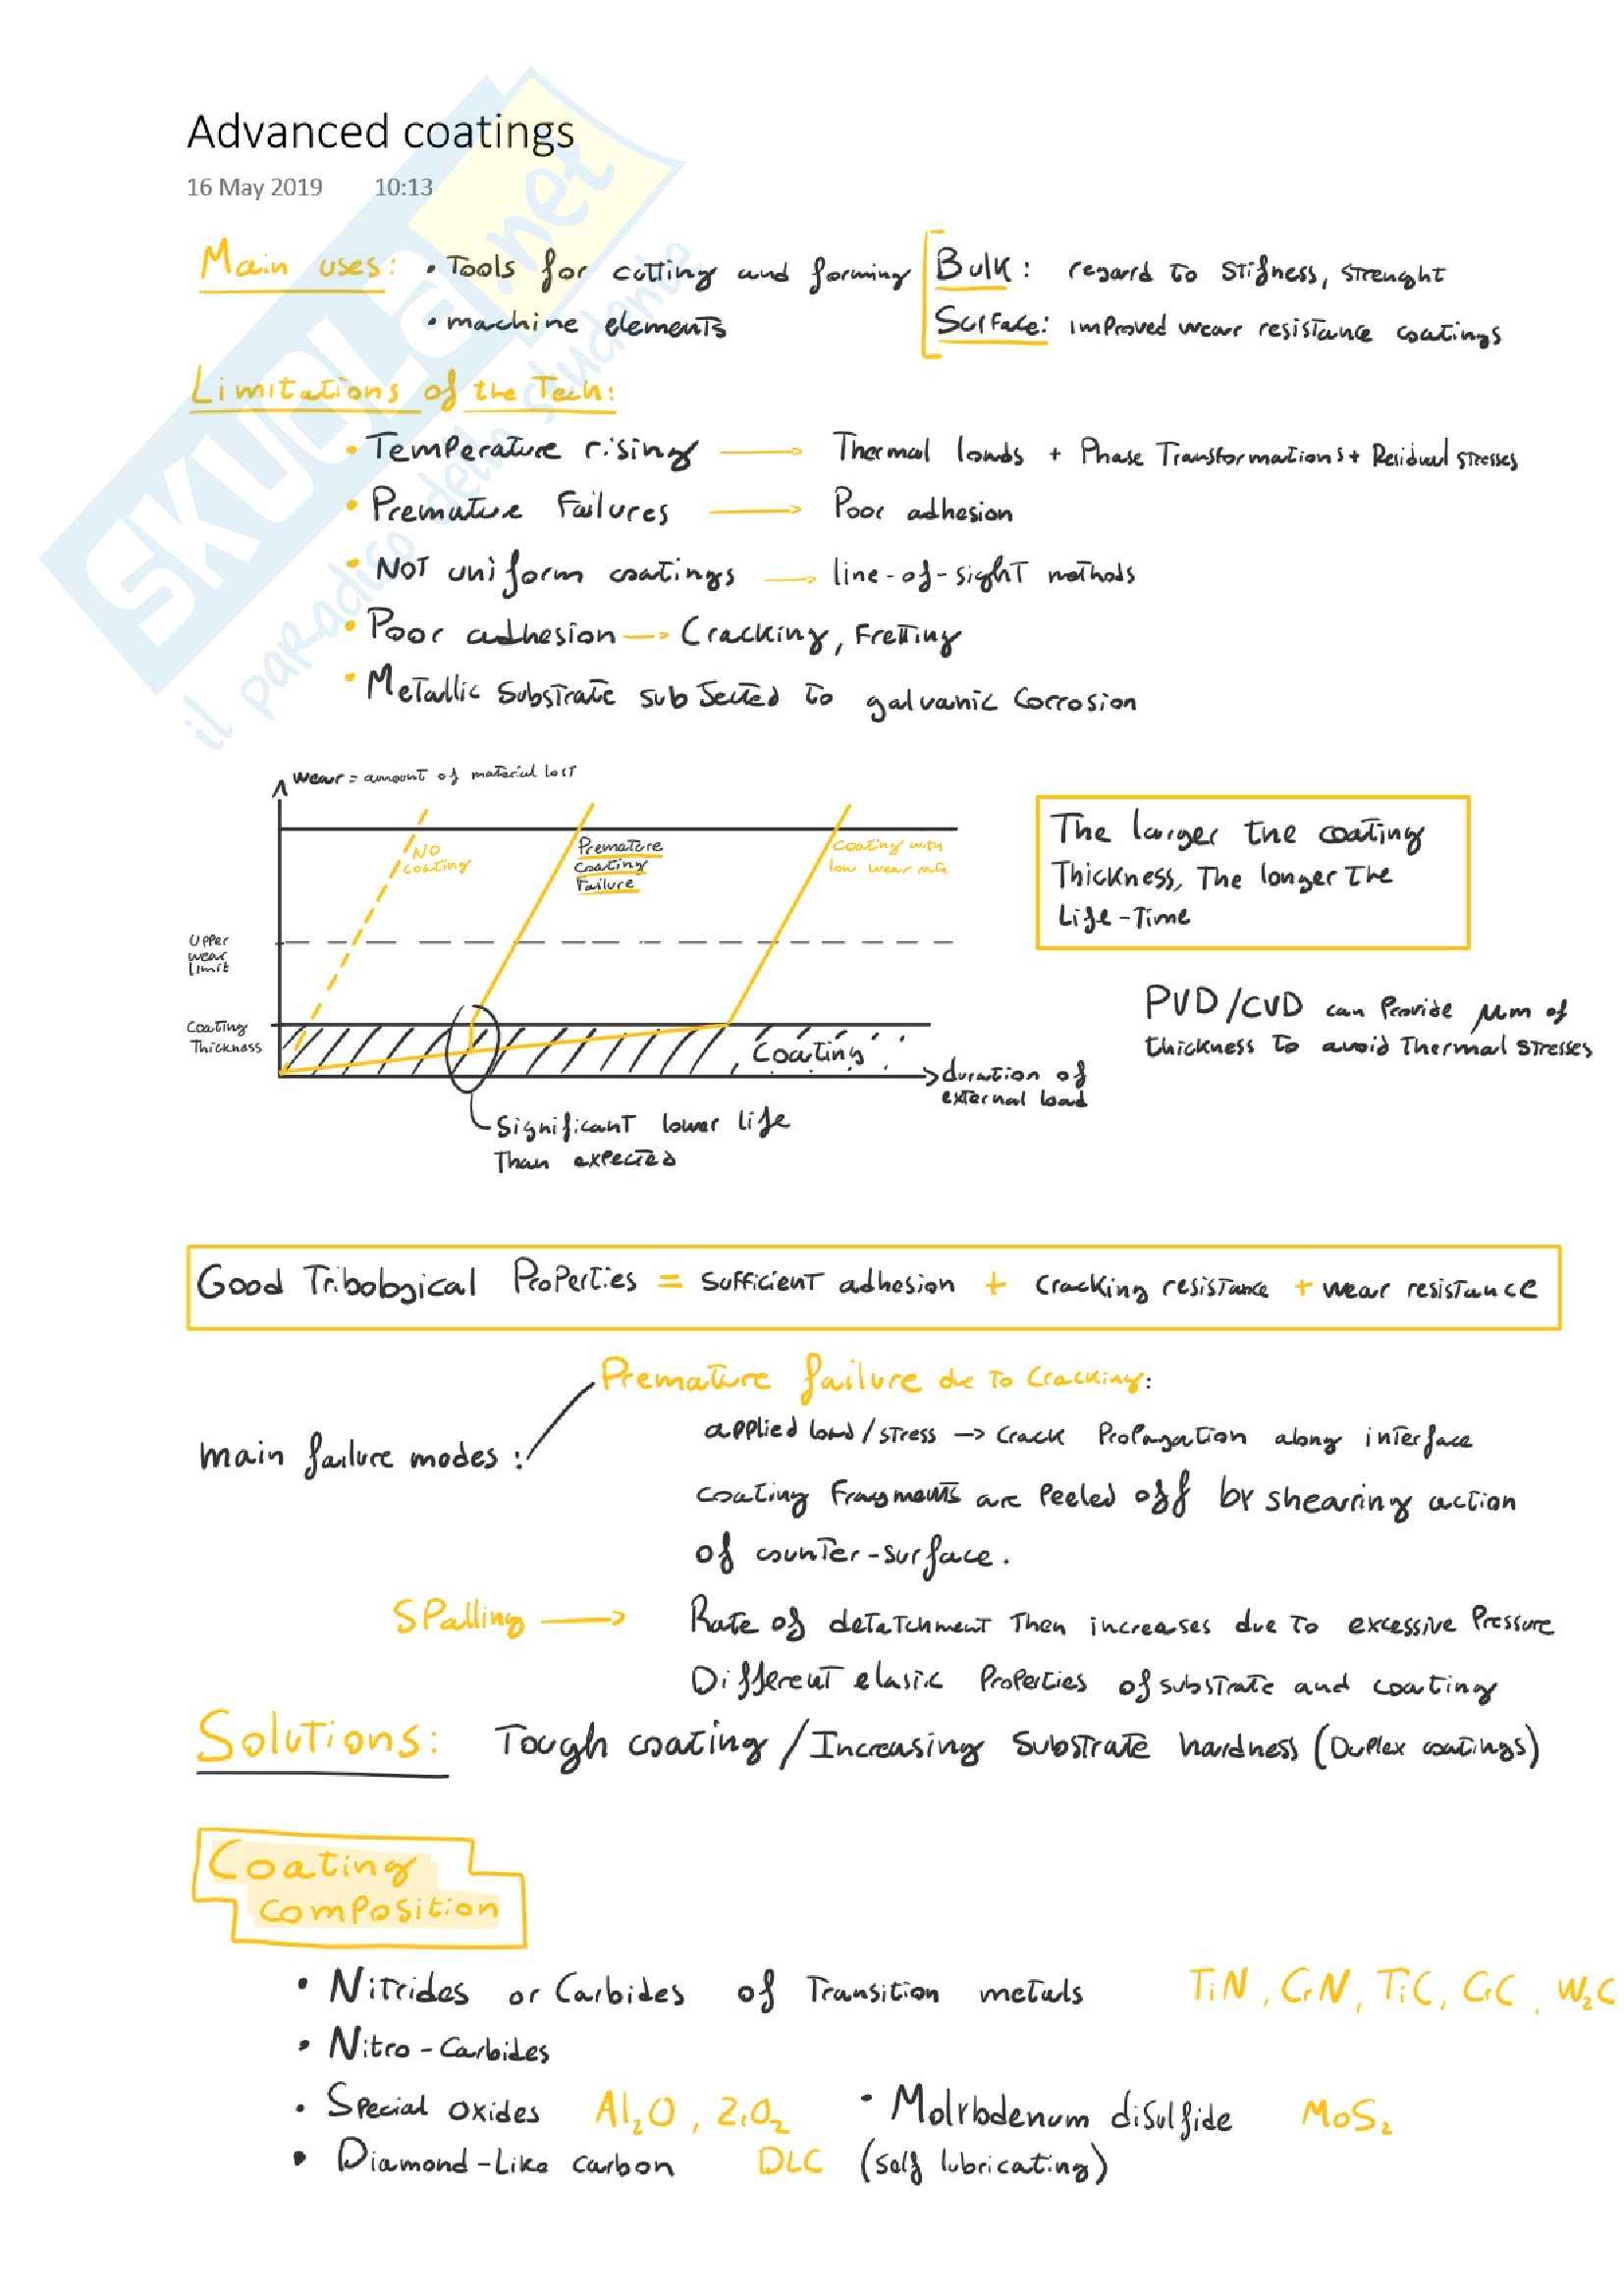 Advanced coatings
16 May 2019 10:13
SKUOLA.net
il paradiso dello studente
Main uses: • Tools for cutting and forming
• machine elements
Bulk: regard to stifness, strenght
Surface: improved wear resistance coatings
Limitations of the Tech:
• Temperature rising → Thermal loads + Phase Transformations + Residual stresses
• Premature Failures → Poor adhesion
• Not uniform coatings → line-of-sight methods
• Poor adhesion → Cracking, Fretting
• Metallic substrate subjected to galvanic corrosion
wear = amount of material lost
NO coating
Premature
coating
Failure
coating with
low wear rate
Upper
wear
limit
Coating
Thickness
Coating
duration of
external load
Significant lower life
Than expected
The larger the coating
Thickness, The longer the
Life-Time
PVD/CVD can provide μm of
thickness to avoid Thermal stresses
Good Tribological Properties = sufficient adhesion + cracking resistance + wear resistance
main failure modes:
Premature failure due to cracking:
applied load/stress → crack propagation along interface
coating fragments are peeled off by shearing action
of counter-surface.
Spalling → Rate of detatchment then increases due to excessive pressure
Different elastic properties of substrate and coating
Solutions: Tough coating / Increasing substrate hardness (Duplex coatings)
Coating
composition
• Nitrides or Carbides of Transition metals TiN, CrN, TiC, CrC, W₂C
• Nitro-Carbides
• Special oxides Al₂O, ZrO₂ • Molybdenum disulfide MoS₂
• Diamond-Like carbon DLC (self lubricating)